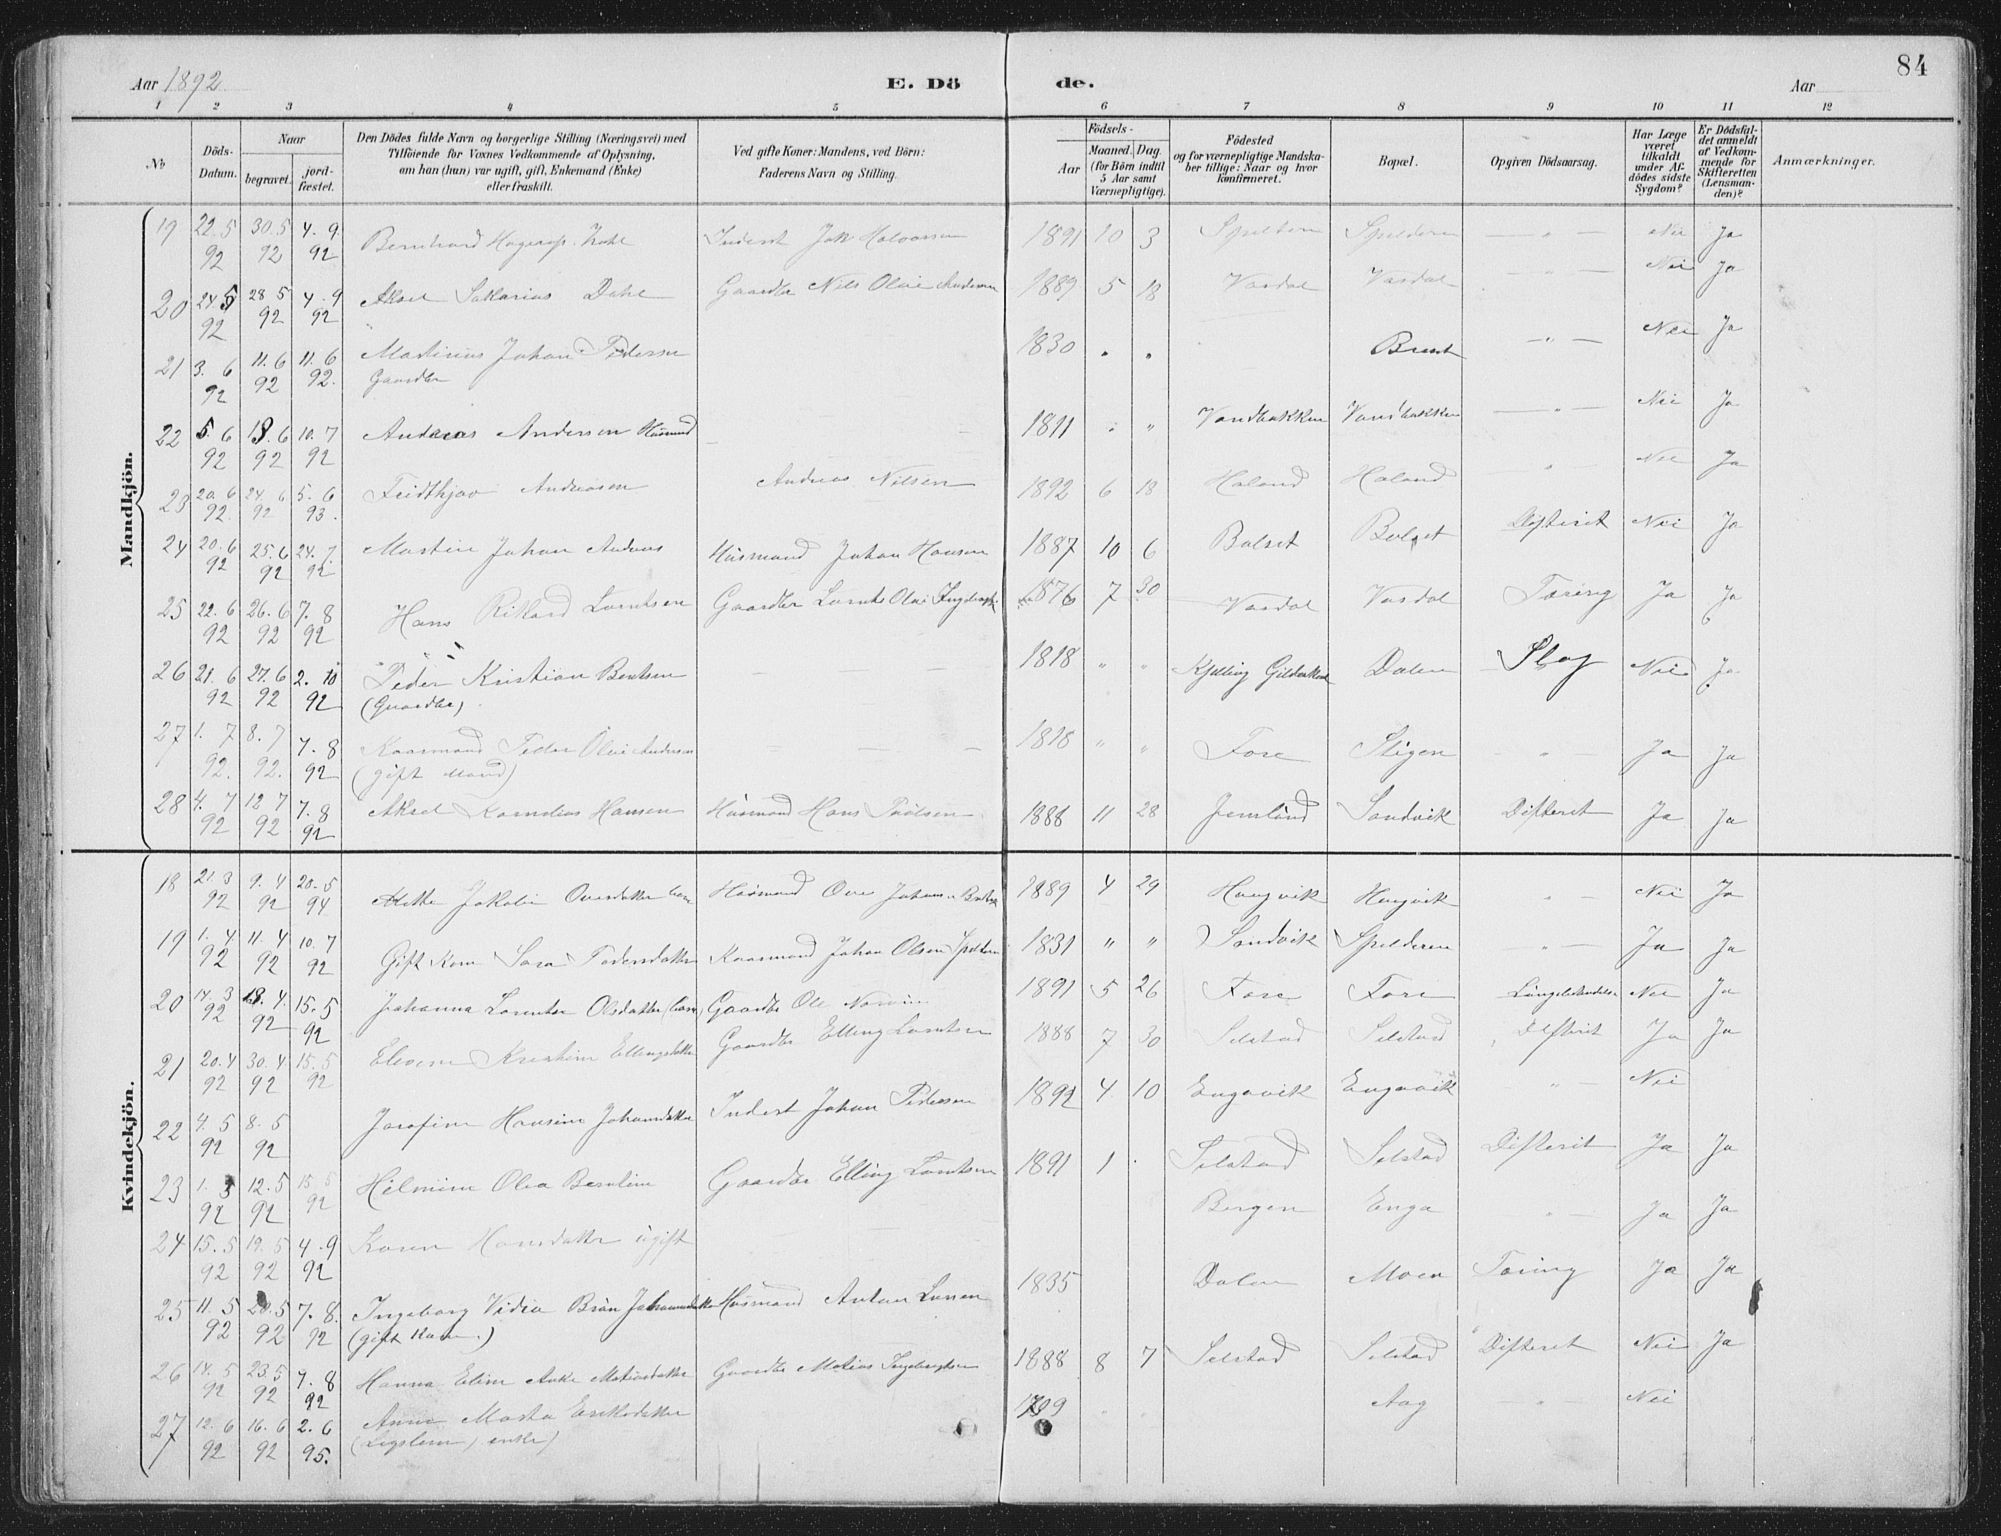 84
Aar 1892
E. Dö
de.
Aar
1 2 3 4 5 6 7 8 9 10 11 12
No
Döds-
Datum.
Naar
begravet.
jord-
fæstet.
Den Dödes fulde Navn og borgerlige Stilling (Næringsvei) med
Tilföiende for Voxnes Vedkommende af Oplysning,
om han (hun) var ugift, gift, Enkemand (Enke)
eller fraskilt.
Ved gifte Koner: Mandens, ved Börn:
Faderens Navn og Stilling.
Födsels-
Aar
Maaned. Dag.
(for Börn indtil
5 Aar samt
Værnepligtige).
Födested
og for værnepligtige Mandska-
ber tillige: Naar og hvor
konfirmeret.
Bopæl.
Opgiven Dödsaarsag.
Har Læge
været
tilkaldt
under Af-
dödes sidste
Sygdom?
Er Dödsfal-
det anmeldt
af Vedkom-
mende for
Skifteretten
(Lensman-
den)?
Anmærkninger.
Mandkjön.
19 22.5 92 30.5 92 4.9 92 Bernhard Hagerup Inderst Jak Halvorsen 1891 10 3 Spildern Spilderen — " — Nei Ja
20 24.5 92 28.5 92 4.9 92 Aksel Sakarias Dahl Gaardbr Nils Olai Andersen 1889 5 18 Vasdal Vasdal — " — Nei Ja
21 3.6 92 11.6 92 11.6 92. Martinus Johan Pedersen 1830 " " — " — Nei Ja
Gaardbr
22 5.6 92 18.6 92 10.7 92 Andreas Andersen Husmand 1811 " " Vandbakken Vandbakken — " — Nei Ja
23 20.6 92. 24.6 92 5.6 93. Fridthjov Andreasen Andreas Nilsen 1892 6 18 Haland Haland — " — Nei Ja
24 20.6 92 25.6 92 24.7. 92 Martin Johan Andreas Husmand Johan Hansen 1887 10 6 Balset Balset Difterit Nei Ja
25 22.6 92 26.6 92 7.8 92 Hans Rikard Lorntsen Gaardbr Lornts Olai 1876 7 30 Vasdal Vasdal Tæring Ja Ja
26 21.6 92 27.6 92 2.10 92 Peder Kristian Bentsen — 1818 " " Kjelling Dalen Slag Nei Ja
(Gaardbr)
27 1.7 92. 8.7 92. 7.8 92 Kaarmand Peder Olai Andersen — 1818 " " Fore Stigen — " — Ja Ja
(gift Mand)
28 4.7 92 12.7 92 7.8 92 Aksel Kornelius Hansen Husmand Hans 1888 11 28 Sandvik Difterit Ja Ja
Kvindekjön.
18 21.3 92 9.4 92 20.5 94 Jakobin Ovesdatter Husmand Ove Johan 1889 4 29 Haugvik Haugvik — " — Nei Ja
19 1.4 92 11.4 92 10.7 92 Gift Kone Sara Pedersdatter Kaarmand Johan Olsen 1831 " " Sandvik Spilderen — " — Ja Ja
20 14.3 92 18.4. 92 15.5 92 Johanna Olsdatter Gaardbr Ole 1891 5 26 Fore Fore Nei Ja
21 20.4 92 30.4 92 15.5 92 Kristine Ellingsdatter Gaardbr Elling Lorntsen 1888 7 30 Selstad Selstad Difterit Ja Ja
22 4.5 92 8.5 92 Josefine Hansine Johansdatter Inderst Johan Pedersen 1892 4 10 Engavik Engavik — " — Nei
23 1.5 92 12.5 92 15.5 92 Helmine Olea Berntine Gaardbr Elling Lorntsen 1891 1 . Selstad Selstad Difterit Ja Ja
24 15.5 92 19.5 92 4.9 92 Karen Hansdatter ugift Bergen Enga — " — Ja Ja
25 11.5 92 20.5 92 7.8. 92 Ingeborg Johannesdatter Husmand Anton Larsen 1835 Dalen Moen Tæring Ja Ja
(gift Kone.)
26 14.5 92 23.5 92 7.8 92 Hanna Eline Matiasdatter Gaardbr Matias Ingebrigtsen 1888 8 7 Selstad Selstad Difterit Nei Ja
27 12.6 92 16.6 92 2.6 95. Anna Marta Eriksdatter 1799 Aag — " — Nei
(Legslem, enke)